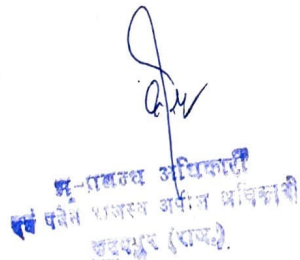 भू-प्रबन्ध अधिकारी
एवं पदेन राजस्व अपील अधिकारी
(राज.)